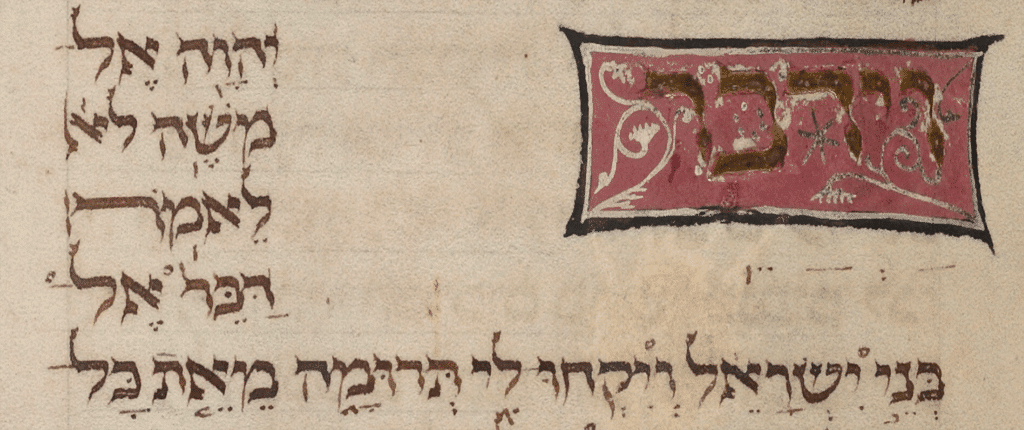 וַיְדַבֵּר
יְהוָה אֶל
מֹשֶׁה לא
לֵאמֹר
דַּבֵּר אֶל
בְּנֵי יִשְׂרָאֵל וְיִקְחוּ לִי תְּרוּמָה מֵאֵת כָּל